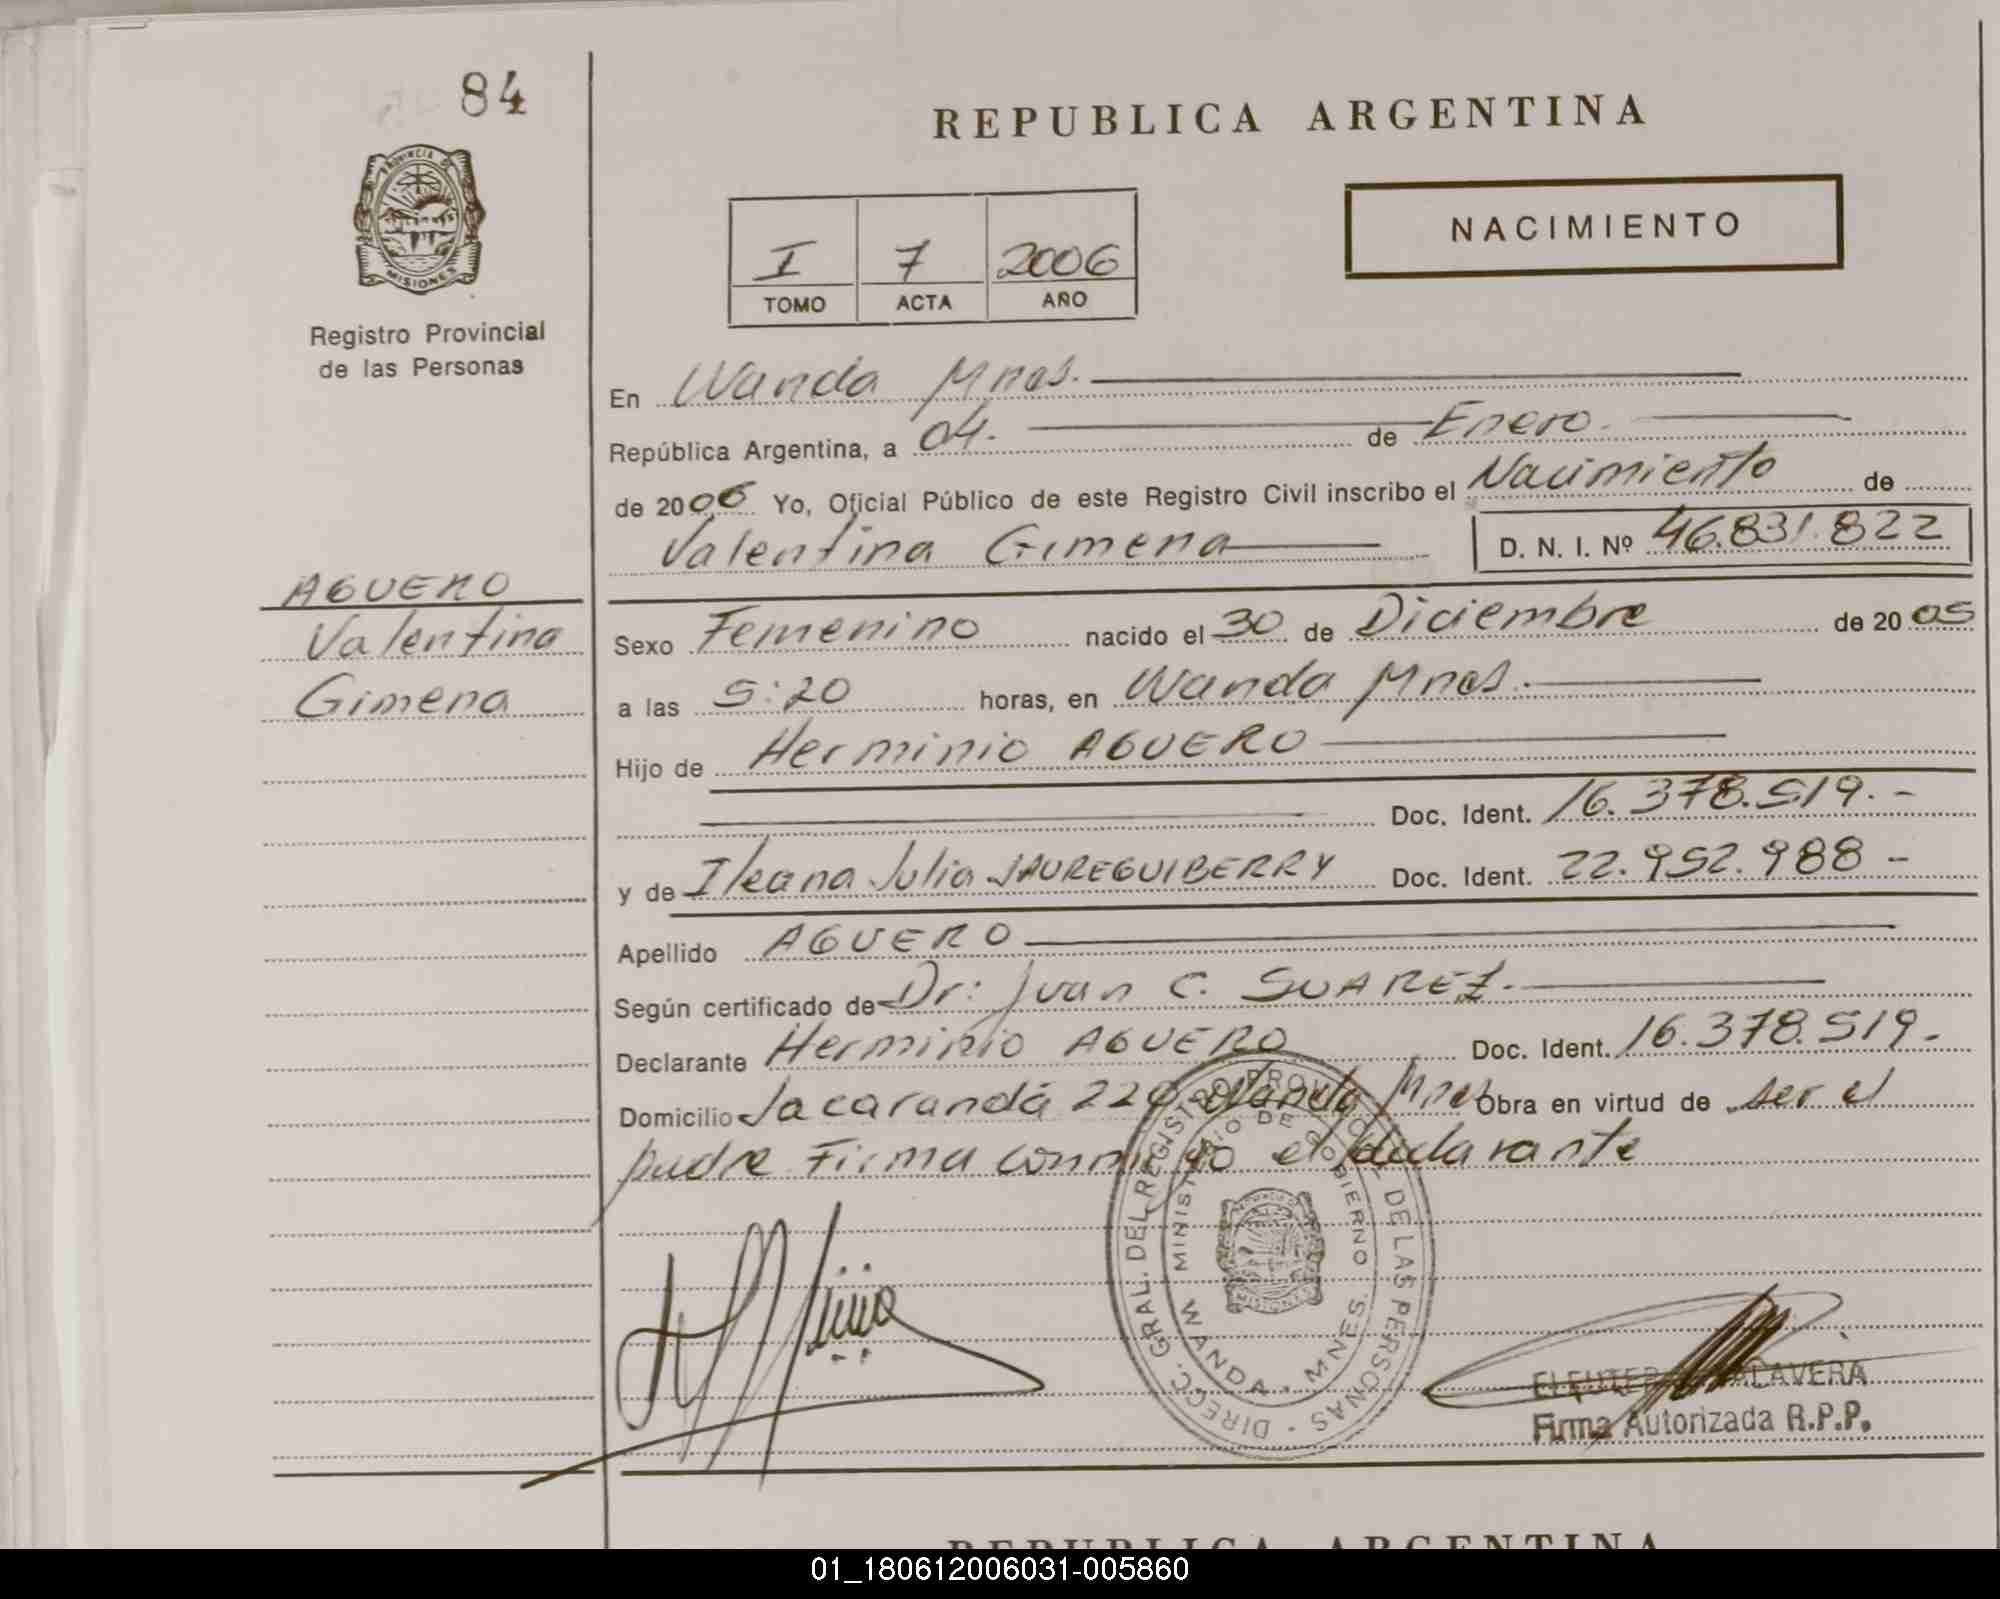 84
PROVINCIA DE
MISIONES
Registro Provincial
de las Personas
REPUBLICA ARGENTINA
NACIMIENTO
I 7 2006
TOMO ACTA AÑO
En Wanda Mnes.
República Argentina, a 04. de Enero.
de 2006 Yo, Oficial Público de este Registro Civil inscribo el Nacimiento de
Valentina Gimena D. N. I. Nº 46.831.822
AGUERO
Valentina
Gimena
Sexo Femenino nacido el 30 de Diciembre de 2005
a las 5:20 horas, en Wanda Mnes.
Hijo de Herminio AGUERO
Doc. Ident. 16.378.519.-
y de Ileana Julia JAUREGUIBERRY Doc. Ident. 22.952.988-
Apellido AGUERO
Según certificado de Dr: Juan C. SUAREZ.
Declarante Herminio AGUERO Doc. Ident. 16.378.519.-
Domicilio Jacarandá 220 Wanda Mnes Obra en virtud de ser el
padre Firma conmigo el declarante
DIRECC. GRAL. DEL REGISTRO PROVINCIAL DE LAS PERSONAS
MINISTERIO DE GOBIERNO
MISIONES
WANDA - MNES.
Firma Autorizada R.P.P.
REPUBLICA ARGENTINA
01_180612006031-005860